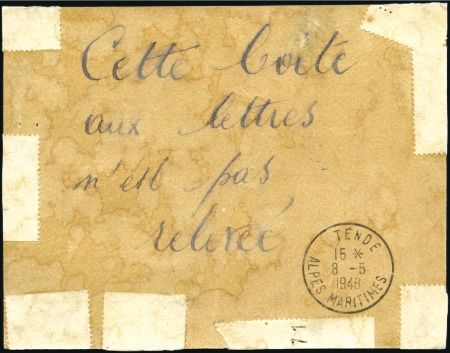 Cette boîte
aux lettres
n'est pas
relevée
TENDE
15 *
8 -5
1948
ALPES MARITIMES